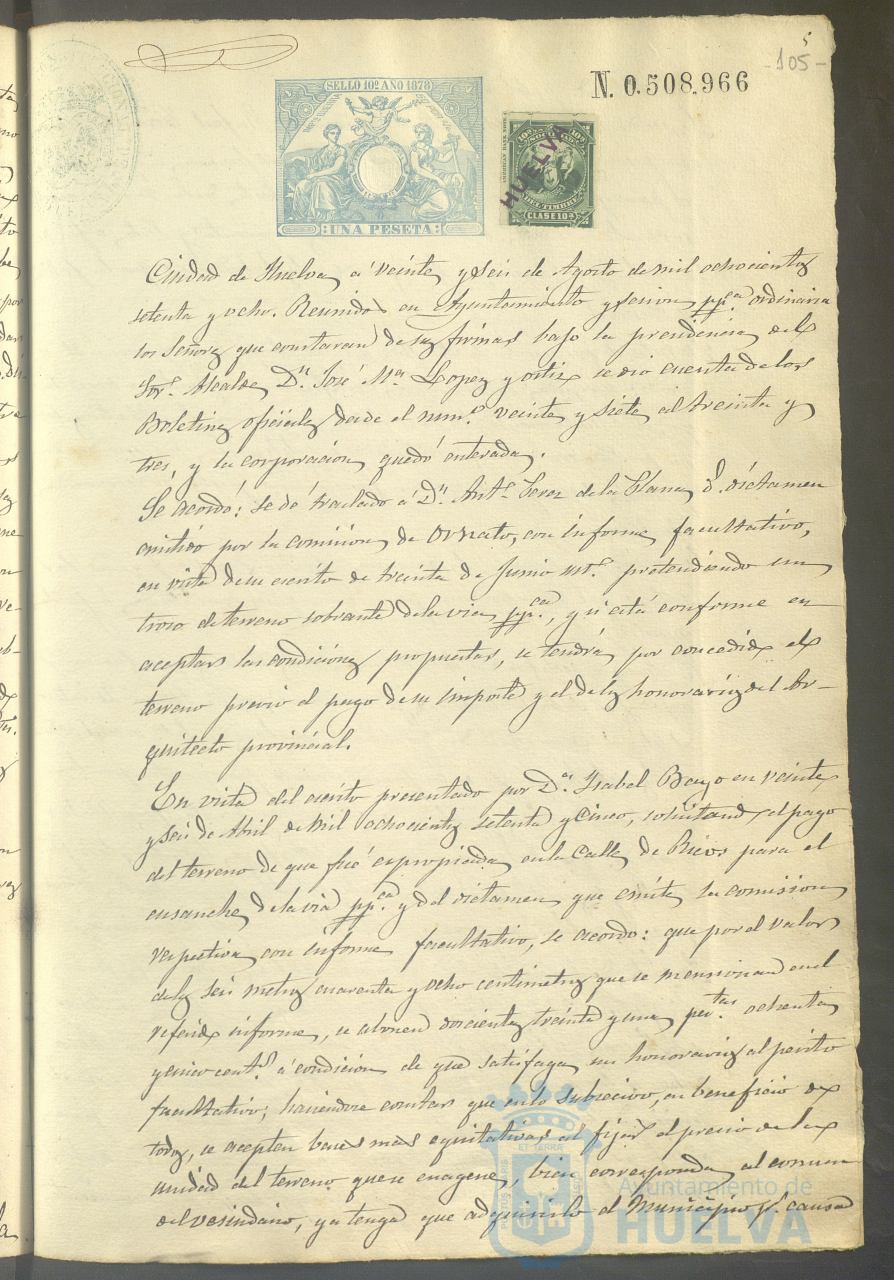 5
-105-
N. 0.508.966
SELLO 10º AÑO 1878
UNA PESETA
10ª SOCIEDAD 10ª
DEL TIMBRE
CLASE 10ª
HUELVA
Ciudad de Huelva á veinte y seis de Agosto de mil ochocientos
setenta y ocho. Reunidos en Ayuntamiento y sesion pp.ca ordinaria
los Señores que constaran de sus firmas bajo la presidencia del
Sor. Alcalde, Dn. José Ma. Lopez y ortiz se dió cuenta de los
Boletines oficiales desde el num.o veinte y siete al treinta y
tres, y la corporacion quedó enterada.
Se acordó: se dé traslado á Dn. Ant.o Perez de la Llana, del dictamen
emitido por la comision de Ornato, con informe facultativo,
en vista de su escrito de treinta de Junio ult.o pretendiendo un
trozo de terreno sobrante de la via pp.ca, y si está conforme en
aceptar las condiciones propuestas, se tendrá por concedido el
terreno previo el pago de su importe y el de los honorarios del Ar-
quitecto provincial.
En vista del escrito presentado por D.a Isabel Bayo en veinte
y seis de Abril de mil ochocientos setenta y cinco, solicitando el pago
del terreno de que fué expropiada en la Calle de Ricos para el
ensanche de la via pp.ca y del dictamen que emite la comision
respectiva con informe facultativo, se acordo: que por el valor
de los seis metros cuarenta y ocho centimetros que se mensionan en el
referido informe, se abonen doscientas treinta y una pes.tas ochenta
y cinco cent.s á condicion de que satisfaga sus honorarios al perito
facultativo; haciendose constar que en lo subsecivo, en beneficio de
todos, se acepten bases mas equitativas al fijar el precio de la
unidad del terreno que se enagene, bien corresponda al comun
del vesindario, ya tenga que adquirirlo el Municipio p.r causa
Ayuntamiento de
HUELVA